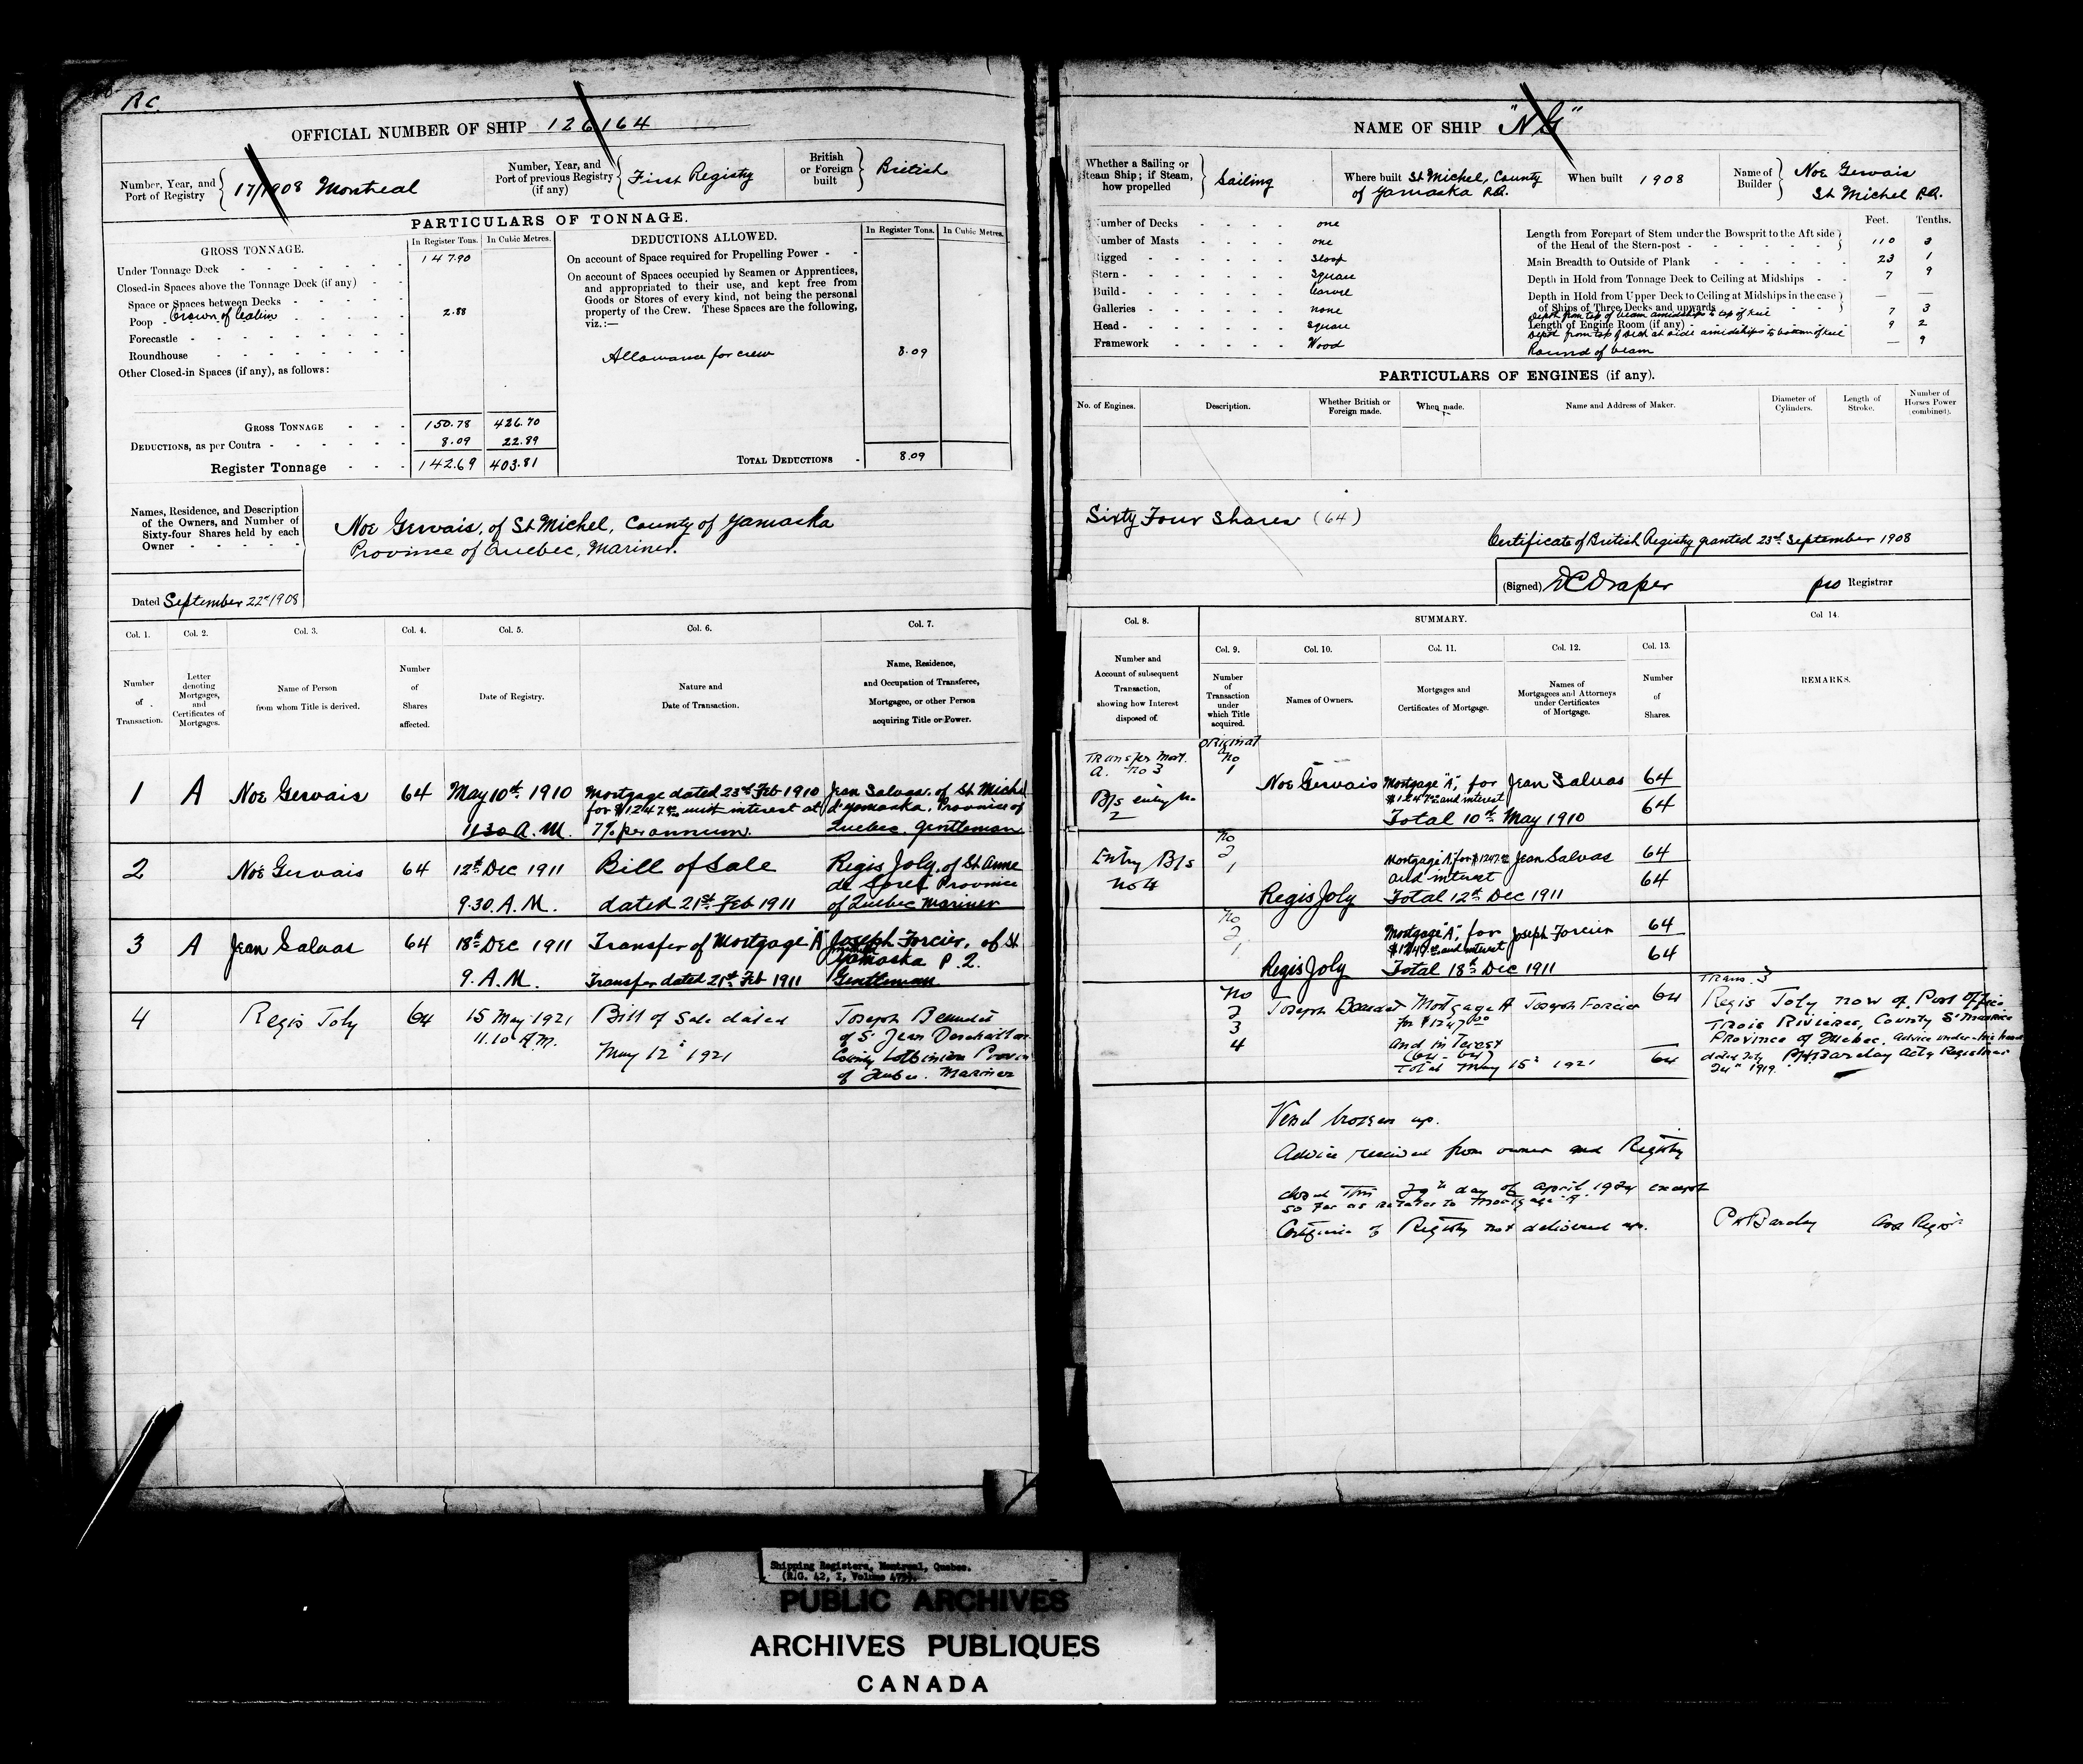 R.C.
OFFICIAL NUMBER OF SHIP 126164
Number, Year, and
Port of Registry
17/1908 Montreal
Number, Year, and
Port of previous Registry
(if any)
First Registry
British
or Foreign
built
British
PARTICULARS OF TONNAGE.
GROSS TONNAGE.
In Register Tons.
In Cubic Metres.
DEDUCTIONS ALLOWED.
In Register Tons.
In Cubic Metres.
Under Tonnage Deck 147.90
Closed-in Spaces above the Tonnage Deck (if any)
Space or Spaces between Decks
Poop Crown of Cabin 2.88
Forecastle
Roundhouse
Other Closed-in Spaces (if any), as follows:
On account of Space required for Propelling Power
On account of Spaces occupied by Seamen or Apprentices,
and appropriated to their use, and kept free from
Goods or Stores of every kind, not being the personal
property of the Crew. These Spaces are the following,
viz.:—
Allowance for crew 8.09
GROSS TONNAGE 150.78 426.70
DEDUCTIONS, as per Contra 8.09 22.89
Register Tonnage 142.69 403.81
TOTAL DEDUCTIONS 8.09
Names, Residence, and Description
of the Owners, and Number of
Sixty-four Shares held by each
Owner
Noe Gervais, of St Michel, County of Yamaska
Province of Quebec, Mariner.
Dated September 22nd 1908
Col. 1.
Number
of
Transaction.
Col. 2.
Letter
denoting
Mortgages,
and
Certificates of
Mortgages.
Col. 3.
Name of Person
from whom Title is derived.
Col. 4.
Number
of
Shares
affected.
Col. 5.
Date of Registry.
Col. 6.
Nature and
Date of Transaction.
Col. 7.
Name, Residence,
and Occupation of Transferee,
Mortgagee, or other Person
acquiring Title or Power.
1 A Noe Gervais 64
May 10th 1910
11.30 A.M.
Mortgage dated 23rd Feb 1910
for $1247.00 with interest at
7% per annum.
Jean Salvas, of St Michel
d'yamaska, Province of
Quebec, Gentleman
2 Noe Gervais 64
12th Dec 1911
9.30 A.M.
Bill of Sale
dated 21st Feb 1911
Regis Joly, of St Anne
de Sorel Province
of Quebec Mariner
3 A Jean Salvas 64
18th Dec 1911
9. A.M.
Transfer of Mortgage "A"
Transfer dated 21st Feb 1911
Joseph Forcier, of St
Michel
Yamaska P.Q.
Gentleman
4 Regis Joly 64
15 May 1921
11.10 A.M.
Bill of Sale dated
May 12th 1921
Joseph Beaudet
of St Jean Deschaillons
County Lotbiniere Provin
of Quebec. Mariner
NAME OF SHIP "NG"
Whether a Sailing or
Steam Ship; if Steam,
how propelled
Sailing
Where built St Michel, County
of Yamaska P.Q.
When built 1908
Name of
Builder
Noe Gervais
St Michel P.Q.
Number of Decks one
Number of Masts one
Rigged Sloop
Stern Square
Build Carvel
Galleries none
Head Square
Framework Wood
Feet. Tenths.
Length from Forepart of Stem under the Bowsprit to the Aft side
of the Head of the Stern-post 110 3
Main Breadth to Outside of Plank 23 1
Depth in Hold from Tonnage Deck to Ceiling at Midships 7 9
Depth in Hold from Upper Deck to Ceiling at Midships in the case
of Ships of Three Decks and upwards — —
Depth from top of beam amidships to top of keel 7 3
Length of Engine Room (if any)
Depth from top of deck at side amidships to bottom of keel 9 2
Round of beam — 9
PARTICULARS OF ENGINES (if any).
No. of Engines.
Description.
Whether British or
Foreign made.
When made.
Name and Address of Maker.
Diameter of
Cylinders.
Length of
Stroke.
Number of
Horses Power
(combined).
Sixty Four Shares (64)
Certificate of British Registry granted 23rd September 1908
(Signed) DC Draper pro Registrar
Col. 8.
Number and
Account of subsequent
Transaction,
showing how Interest
disposed of.
SUMMARY.
Col. 9.
Number
of
Transaction
under
which Title
acquired.
Col. 10.
Names of Owners.
Col. 11.
Mortgages and
Certificates of Mortgage.
Col. 12.
Names of
Mortgagees and Attorneys
under Certificates
of Mortgage.
Col. 13.
Number
of
Shares.
Col 14.
REMARKS.
Transfer Mort.
A. No 3
B/s entry No
2
Original
No
1
Noe Gervais
Mortgage "A", for
$1247.00 and interest
Total 10th May 1910
Jean Salvas
64
64
Entry B/s
No 4
No
2
1
Regis Joly
Mortgage "A", for $1247.00
and interest
Total 12th Dec 1911
Jean Salvas
64
64
No
2
1
Regis Joly
Mortgage "A", for
$1247.00 and interest
Total 18th Dec 1911
Joseph Forcier
64
64
No
2
3
4
Joseph Beaudet
Mortgage A
for $1247.00
and interest
(64 - 64)
Total May 15th 1921
Joseph Forcier
64
64
Trans. 3
Regis Joly now of Post Office
Trois Rivieres, County St Maurice
Province of Quebec. Advice under his hand
dated July PHBarclay Actg Registrar
24th 1919.
Vessel broken up.
Advice received from owner and Registry
closed this 29th day of April 1924 except
so far as relates to Mortgage "A".
Certificate of Registry not delivered up.
PHBarclay
Shipping Registers, Montreal, Quebec.
(R.G. 42, I, Volume
PUBLIC ARCHIVES
ARCHIVES PUBLIQUES
CANADA